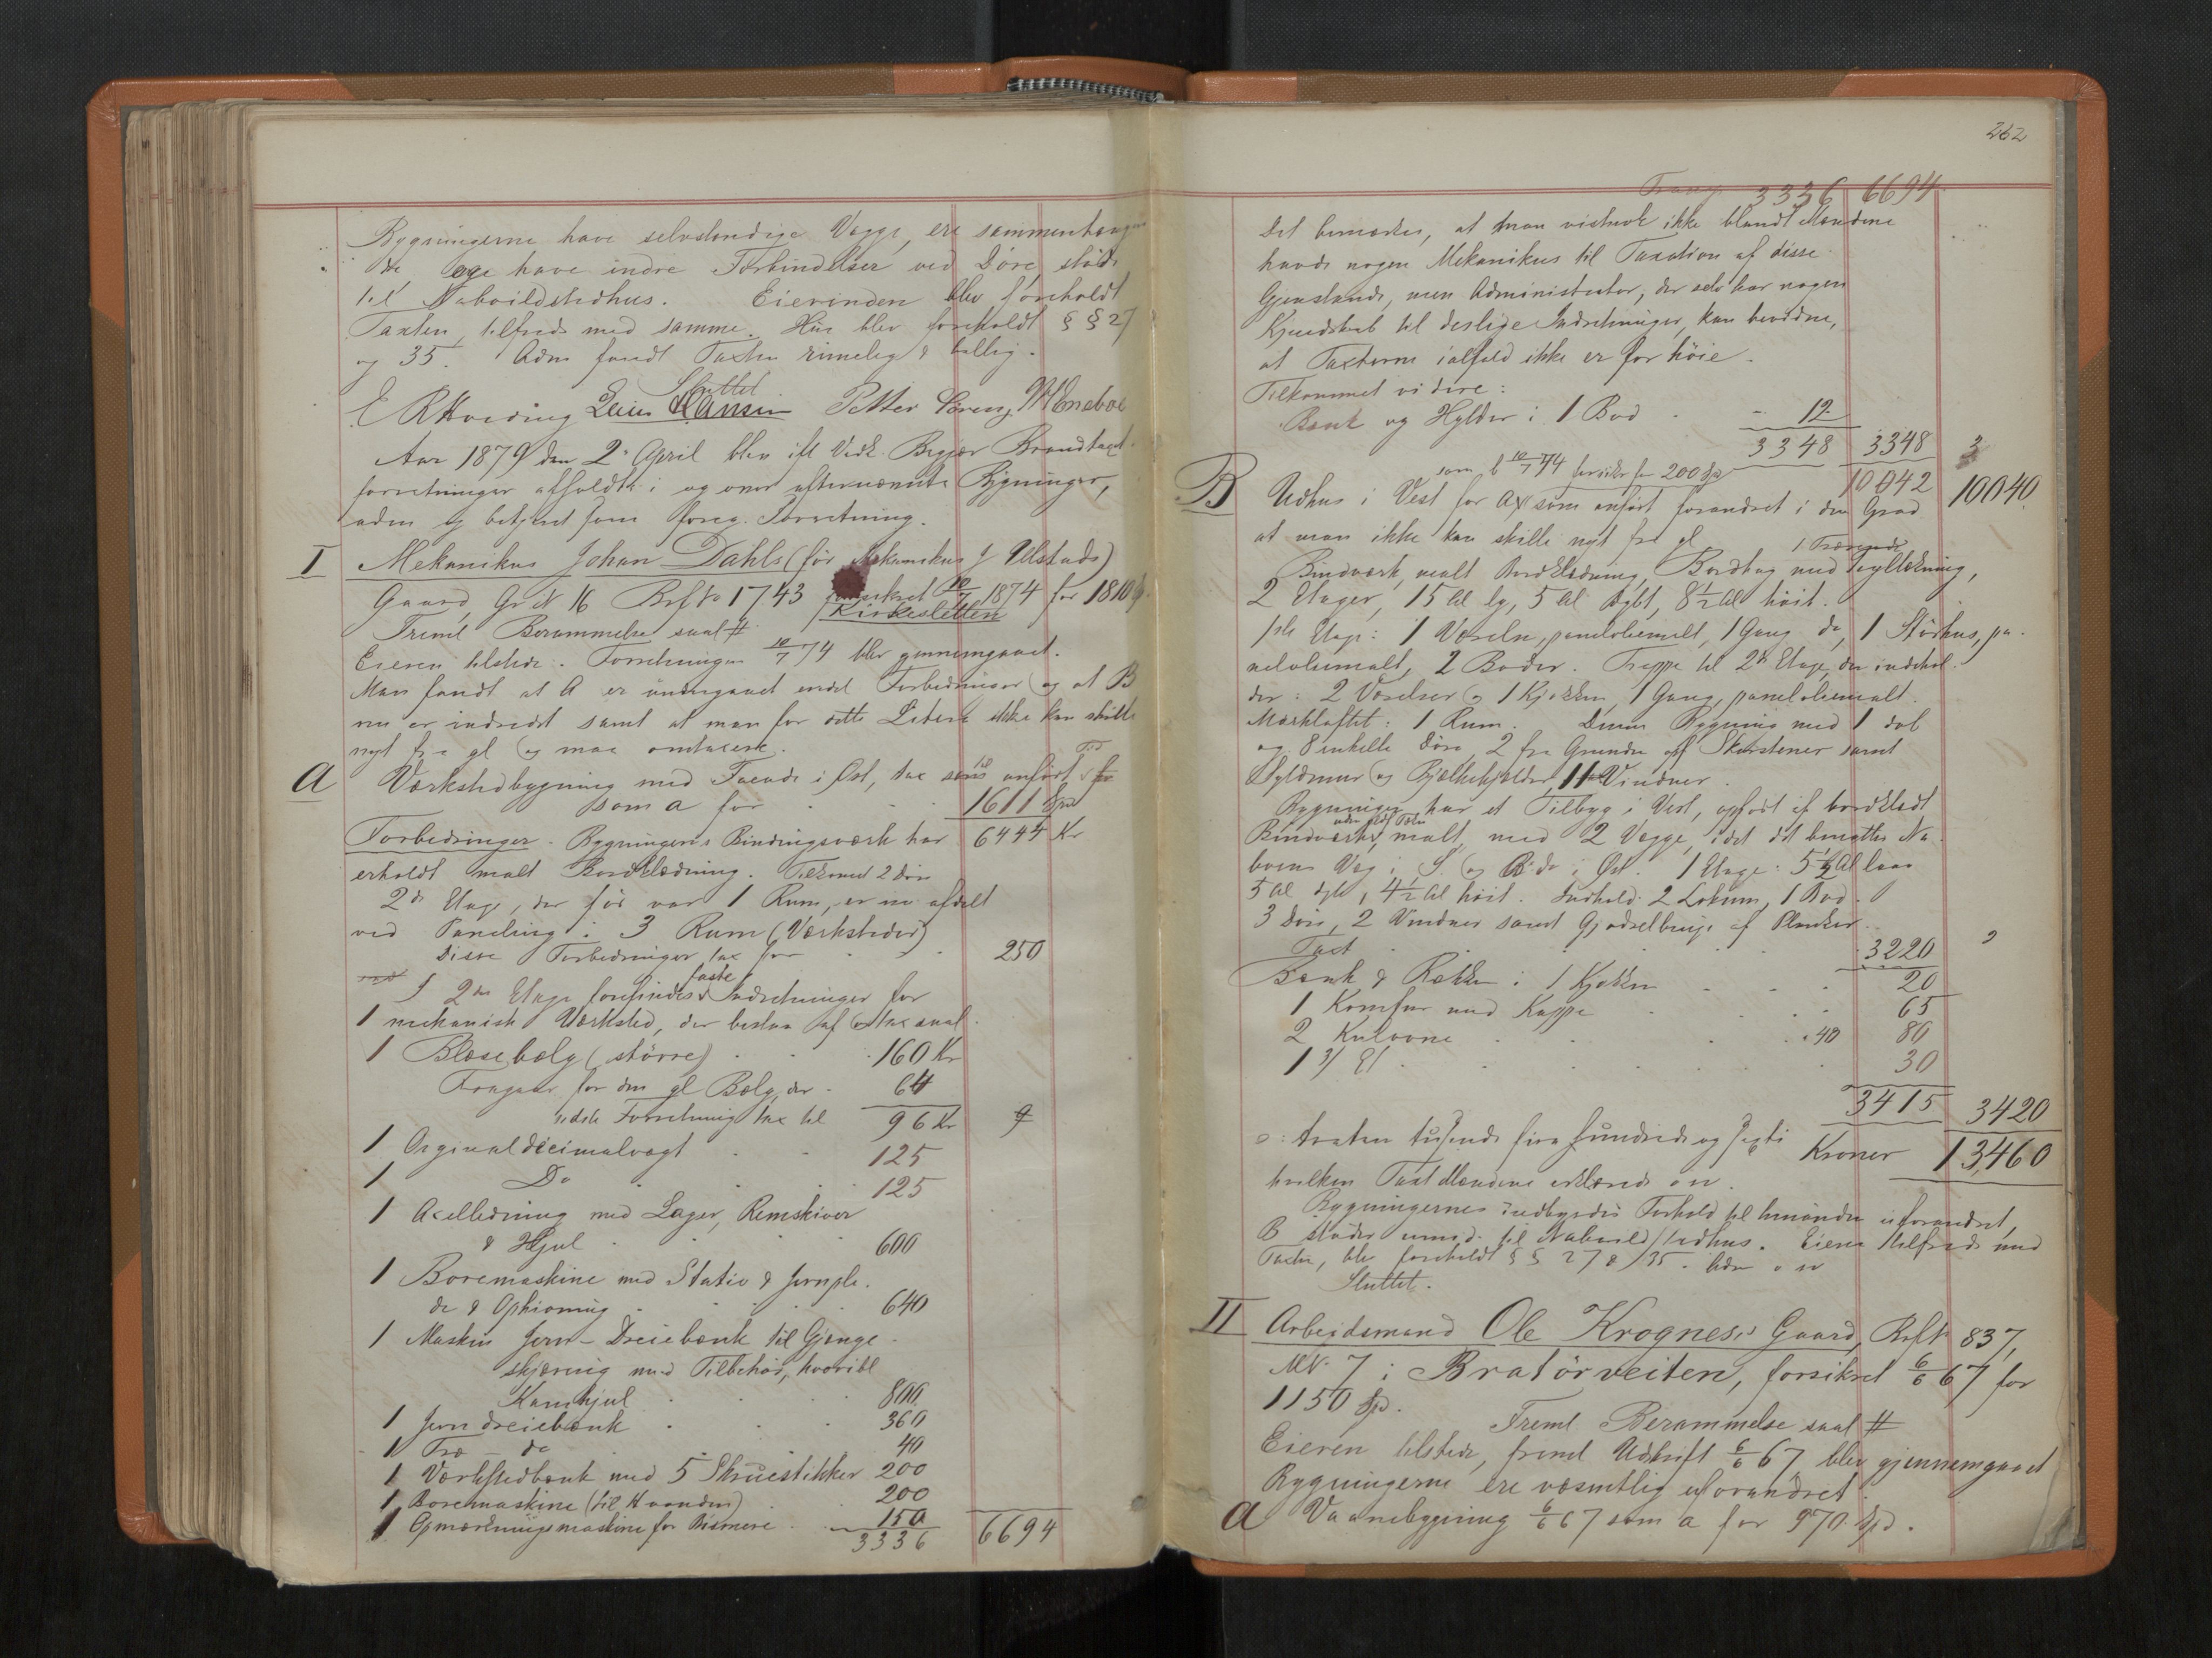 Bygningerne have selvstændige Vægge, ere sammenhængen
de og have indre Forbindelser ved Døre, støde
til Naboildstedhus. Eierinden blev foreholdt
Taxten, tilfreds med samme. Hun blev foreholdt § § 27
og 35. Adm fandt Taxten rimelig & billig.
Sluttet
E R Hveding Hansen Petter Sørens
Aar 1879 den 2 April blev ifl Vedk. Begjær Brandtaxt
forretninger afholdte i og over efternævnte Bygninger,
aden og betjent som foreg. Forretning.
I Mekanikus Johan Dahls (før Mekanikus J Ulstads)
Gaard, Gr N 16 Brf No 1743 forsikret 10/7 1874 for 1810 Sp.
Kirkesletten
Freml Berammelse saal #
Eieren tilstede. Forretningen 10/7 74 blev gjennemgaaet.
Man fandt at A er undergaaet endel Forbedringer og at B
nu er indredet samt at man for dette Litera ikke kan skille
nyt fra gl og maa omtaxere.
A Værkstedbygning med Facade i Øst, tax som anført
som a for 1611 Spd
Forbedringer. Bygningens Bindingsværk har 6444 Kr
erholdt malt Bordklædning. Tilkommet 2 Døre
2de Etage, der før var 1 Rum, er nu afdelt
ved Paneling i 3 Rum (Værksteder)
Disse Forbedringer tax for 250
I 2den Etage forefindes faste Indretninger for
1 mekanisk Værksted, der bestaa af & tax saal.
1 Blæsebælg (større) 160 Kr
Fragaar for den gl Bælg, der 64
sidste Forretning tax til 96 Kr
1 Orginaldecimalvægt 125
1 Do 125
1 Axelledning med Lager, Remskiver
& Hjul 600
1 Boremaskine med Stativ & Jernpla.
de & Ophivning 640
1 Maskin Jern-Dreiebænk til Gjænge
skjæring med Tilbehør, hvoribl
Kamhjul 800
1 Jerndreiebænk 360
1 Træ - do 40
1 Værkstedbænk med 5 Skruestikker 200
1 Boremaskine (til Haanden) 200
1 Opmærkningsmaskine for Bismere 150
3336 6694
262
Transp 3336 6694
Det bemærkes, at man vistnok ikke blandt Mændene
havde nogen Mekanikus til Taxation af disse
Gjenstande, men Administrator, der selv har nogen
Kjendskab til deslige Indretninger, kan bevidne,
at Taxterne ialfald ikke er for høie.
Tilkommet videre:
Bænk og Hylder i 1 Bod 12
3348 3348
som b 10/7 74 forsikr for 200 Sp
10042 10040
B Udhus i Vest for A som anført forandret i den Grad
at man ikke kan skille nyt fra gl
Bindværk, malt Bordklædning, Bordtag med Tegltækning,
2 Etager, 15 Al lg, 5 Al dybt, 8½ Al høit.
1ste Etage: 1 Værelse, panelolieemalt, 1 Gang do, 1 Stødhus, pa-
neloliemalt, 2 Boder. Trappe til 2de Etage, der indehol-
der: 2 Værelser og 1 Kjøkken, 1 Gang, paneloliemalt.
Mørkloftet: 1 Rum. Denne Bygning med 1 dob
og 8 enkelte Døre, 2 fra Grunden opf Skorstener samt
Fyldmur og Bjelkekjelder, 11 Vinduer.
Bygningen har et Tilbyg i Vest, opført af bordklædt
Bindværk, malt, med 2 Vægge, idet det benytter Na-
boens Væg i S. og B. do i Øst. 1 Etage: 5½ Al lang
5 Al dybt, 4½ Al høit. Indhold: 2 Lokum, 1 Bod.
3 Døre, 2 Vinduer samt Gjødselbinge af Planker.
Taxt 3220
Bænk & Rækker i 1 Kjøkken 20
1 Komfur med Kappe 65
2 Kulovne 40 80
1 3/ Et 30
3415 3420
o: tretten tusende fire hundrede og sexti Kroner 13,460
hvilken Taxt Mændene erklærede
Bygningernes indbyrdes Forhold til hinanden uforandret,
B støder umid. til Naboildstedhus. Eieren tilfreds med
Taxten, blev foreholdt § § 27 & 35.
Sluttet.
II Arbejdsmand Ole Krogness's Gaard, Brf No 837,
M N. 7 i Bratørveiten, forsikret 6/6 67 for
1150 Spd.
Freml Berammelse saal #
Eieren tilstede, freml Udskrift 6/6 67 blev gjennemgaaet
Bygningerne ere væsentlig uforandret
a Vaanebygning 6/6 67 som a for 970 Spd.